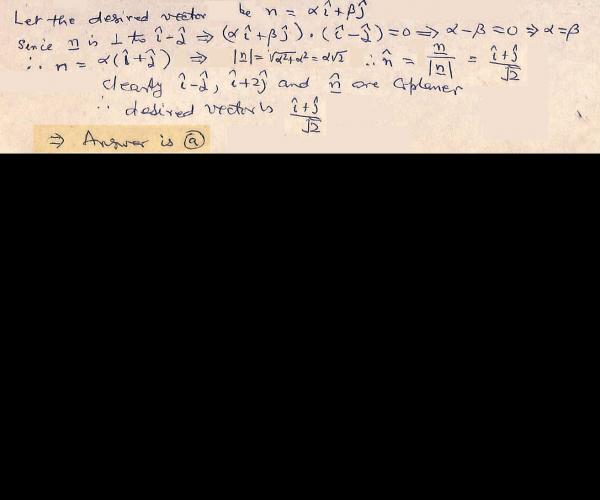 Let the desired vector be n = αî+βĵ
Since n is ⊥ to î-ĵ ⇒ (αî+βĵ)·(î-ĵ)=0 ⇒ α-β=0 ⇒ α=β
∴ n = α(î+ĵ) ⇒ |n| = √α²+α² = α√2 ∴ n̂ = n/|n| = î+ĵ/√2
clearly î-ĵ, î+2ĵ and n̂ are Coplaner
∴ desired vector is î+ĵ/√2
⇒ Answer is ⓐ